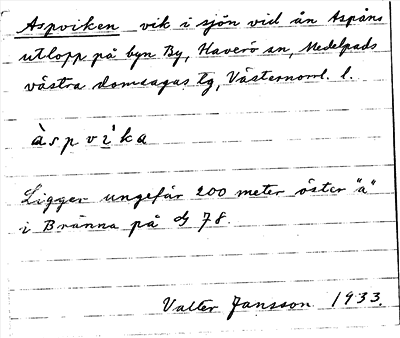 Aspviken vik i sjön vid ån Aspåns
utlopp på byn By, Haverö sn, Medelpads
västra domsagas tg, Västernorrl. l.
àspvika
Ligger ungefär 200 meter öster "a"
i Bränna på 78.
Valter Jansson 1933.